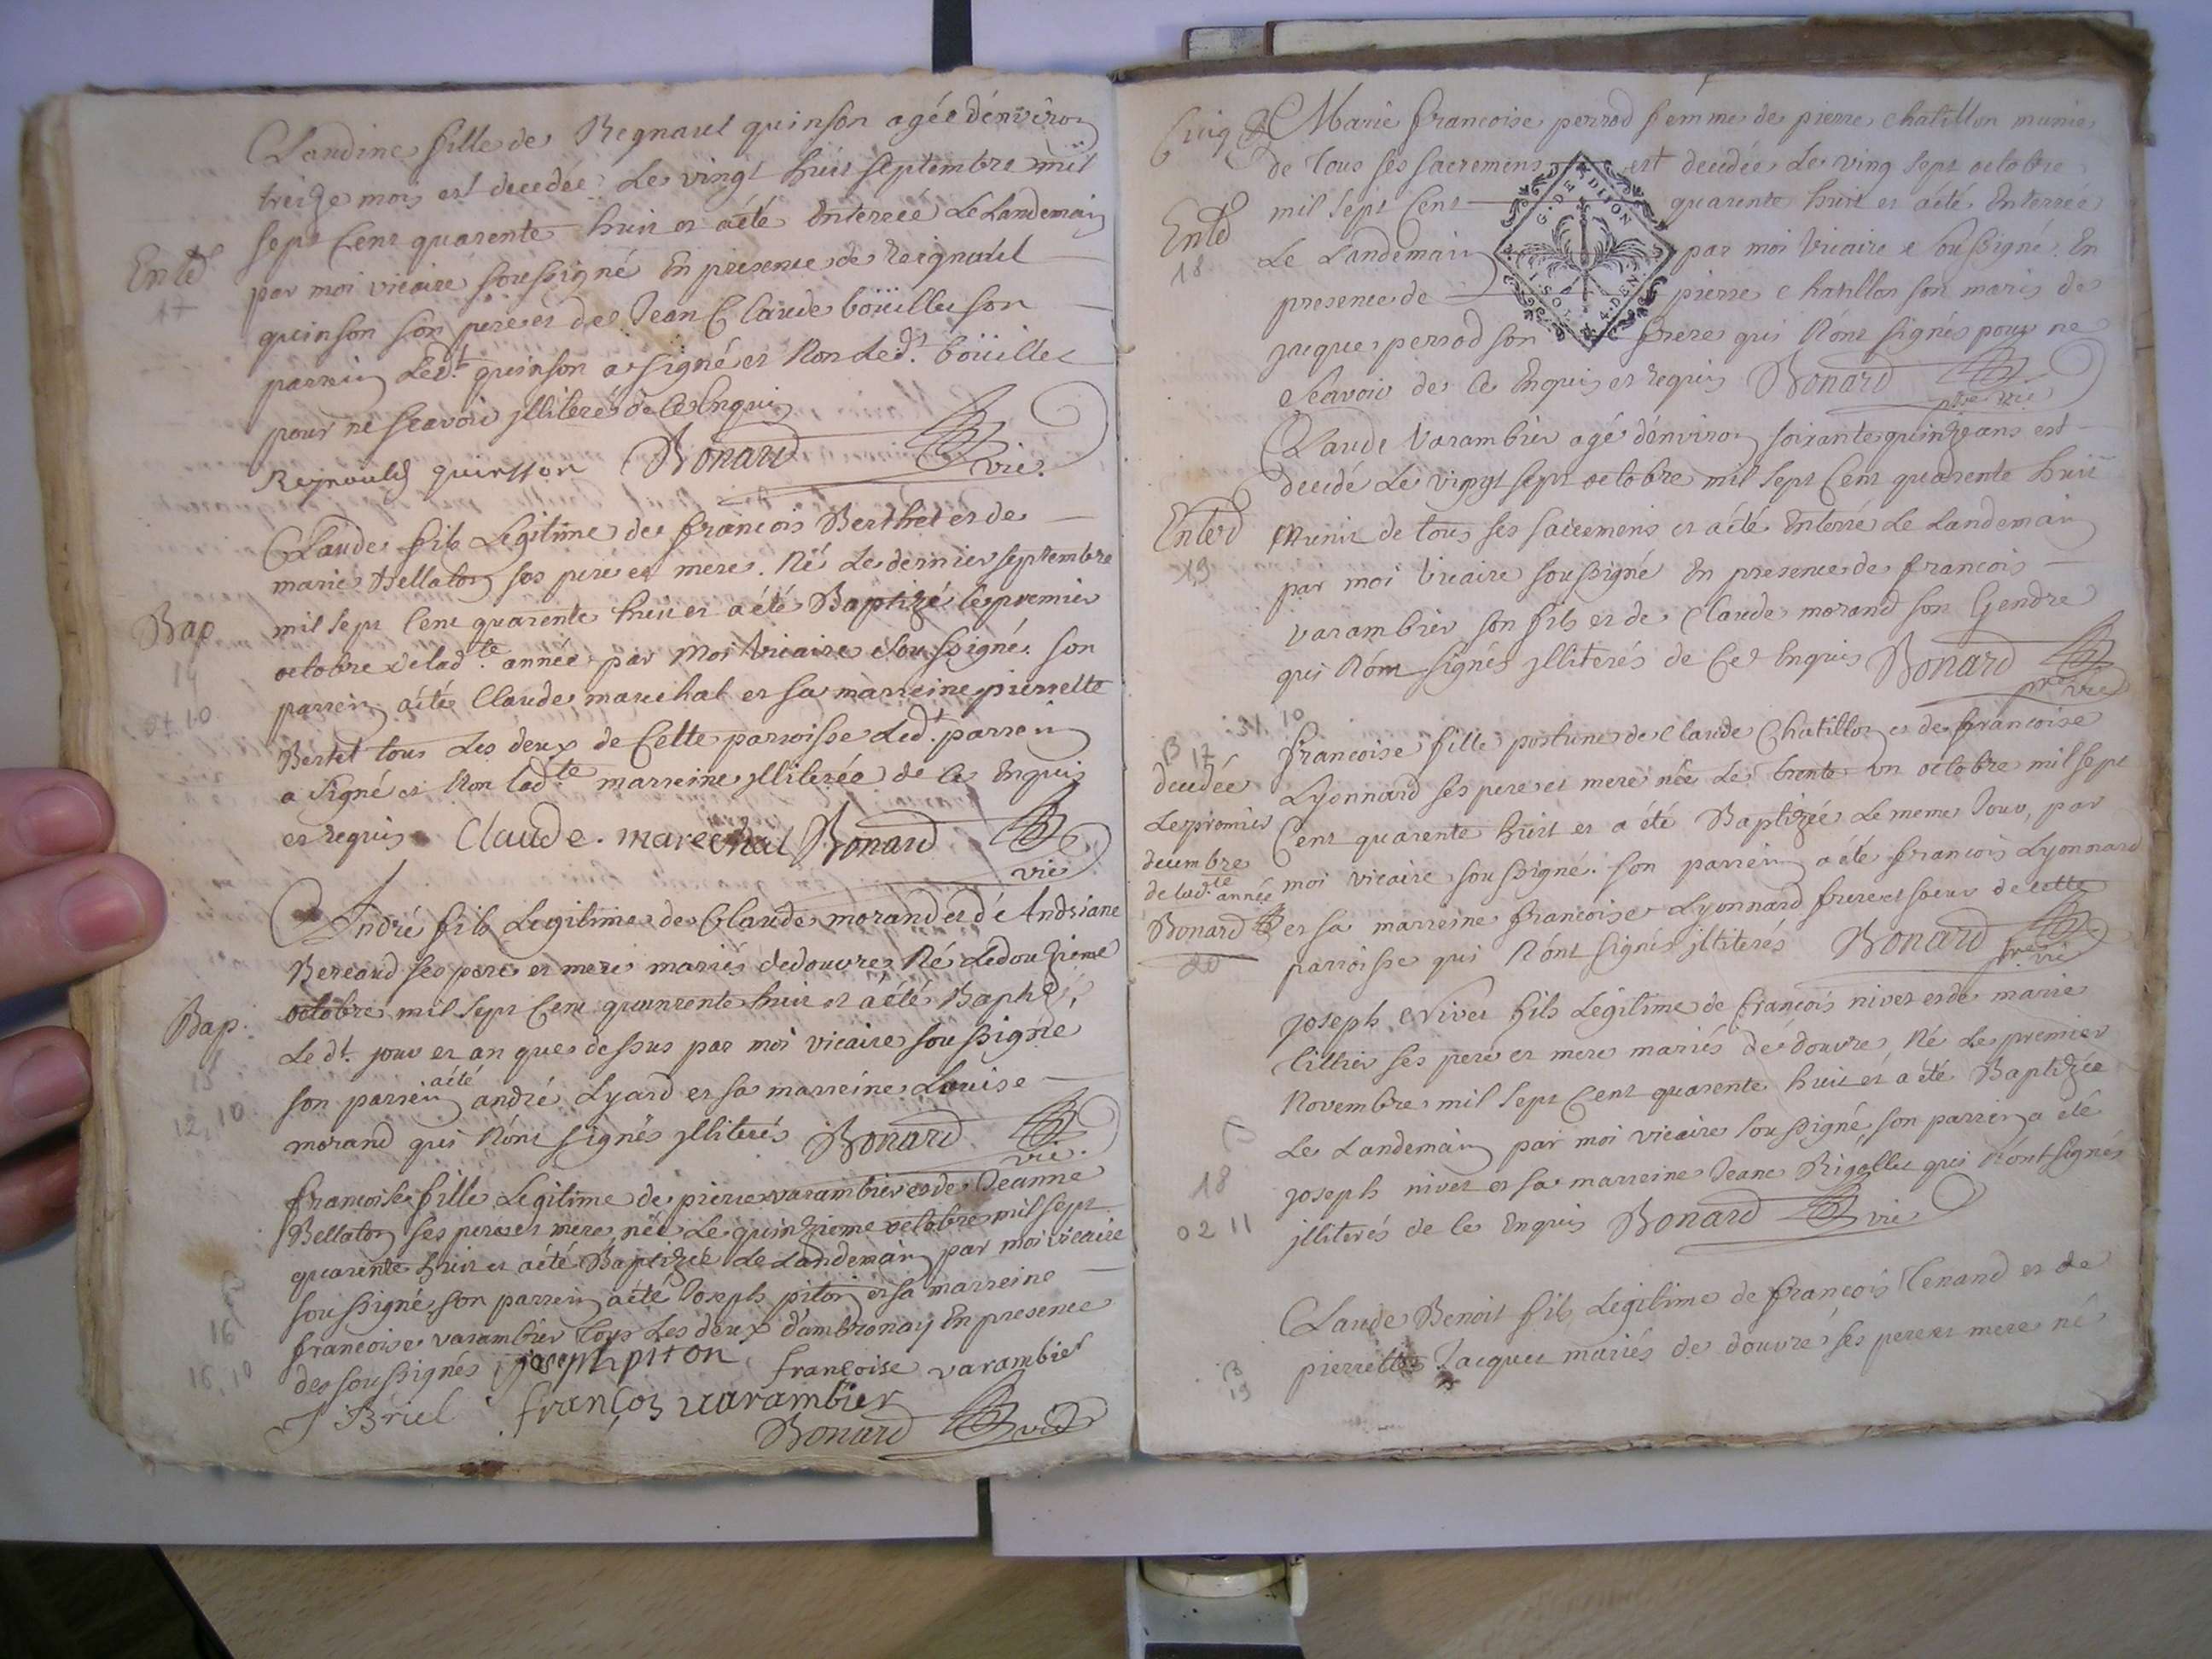 Claudine fille de Regnaul quinson agée dénviron
treize mois est decedée Le vingt huit septembre mil
sept Cent quarente huit et aété Enterrée Le Landemain
Enterd
17
par moi vicaire soussigné En presence de Reignauld
quinson son pere et de Jean Claude boüillet son
parrein Led.t quinson a signé et Non Led.t boüillet
pour ne scavoir jlliteré de Ce Enquis
Reynauld quinsson Bonard vic.
Claude fils Legitime de francois Berthet et de
marie Bellaton ses pere et mere. Né Le dernier septembre
Bap
14
01 10
mil sept Cent quarente huit et aété Baptizé le premier
octobre delad.te année par Moi Vicaire Soussigné. son
parrein aété Claude marechal et sa marreine pierrette
Bertet tous Les deux de Cette parroisse Led.t parrein
a signé et Non lad.te marreine jlliterée de Ce Enquis
et requis Claude. marechal Bonard
vic
André fils Legitime de Claude morand et dé Andriane
Bereaud ses pere et mere mariés de douvre, Né Le douzieme
Bap.
15
12, 10
octobre mil sept Cent quanrente huit et aété Baptizé,
Le d.t jour et an que dessus par moi vicaire soussigné
son parrein aété andré Lyard et sa marreine Louise
morand qui Nónt signés jlliterés Bonard
vic.
francoise fille Legitime de pierre varambier et de Jeanne
Bellaton ses pere et mere, née Le quinzieme octobre mil sept
quarente huit et aété Baptizée Le Landemain par moi vicaire
B
16
16, 10
soussigné, son parrein aété Joseph piton et sa marreine
francoise varambier tous Les deux d'ambronay En presence
des soussignés joseph piton francoise varambier
J Briel françois varambier
Bonard vic
Marie francoise perrod femme de pierre chatillon munie
de tous ses sacremens est decedée Le ving sept octobre
Enterd
18
mil sept Cent quarente huit et aété Enterrée
Le Landemain par moi Vicaire Soussigné. En
presence de pierre chatillon son marie de
jacque perrod son frere qui Nónt signés pour ne
G. DE DIJON
SOL. 4. DEN
Scavoir de Ce Enquis et requis Bonard
ptre vic
Claude Varambier agé dénviron soixante quinze ans est
decedé Le vingt sept octobre mil sept Cent quarente huit
Enterd
19
Munit de tous ses sacremens et aété Enterré Le Landemain
par moi Vicaire soussigné En presence de francois
varambier son fils et de Claude morand son Gendre
qui Nónt signés jlliterés de Ce Enquis Bonard
ptre vic
31, 10
B 17
decedée
Le premier
decembre
de lad.te année
Bonard
20
francoise fille postume de Claude Chatillon et de francoise
Lyonnard ses pere et mere née Le trente un octobre mil sept
Cent quarente huit et a été Baptizée Le meme Jour, par
moi vicaire soussigné. son parrein aété francois Lyonnard
et sa marreine francoise Lyonnard frere et soeur de cette
parroisse qui Nónt signés jlliterés Bonard
ptre vic
joseph Nivet fils Légitime de françois nivet et de marie
tillier ses pere et mere mariés dé douvre, Né Le premier
Novembre mil sept Cent quarente huit et a été Baptizée
B
18
02 11
Le Landemain par moi vicaire soussigné, son parrein a été
joseph nivet et sa marreine Jeane Rigollet qui Nónt signés
jlliterés de Ce Enquis Bonard vic
Claude Benoit fils Legitime de francois Tenand et de
B
19
pierrette Jacquet mariés de douvre, ses pere et mere né